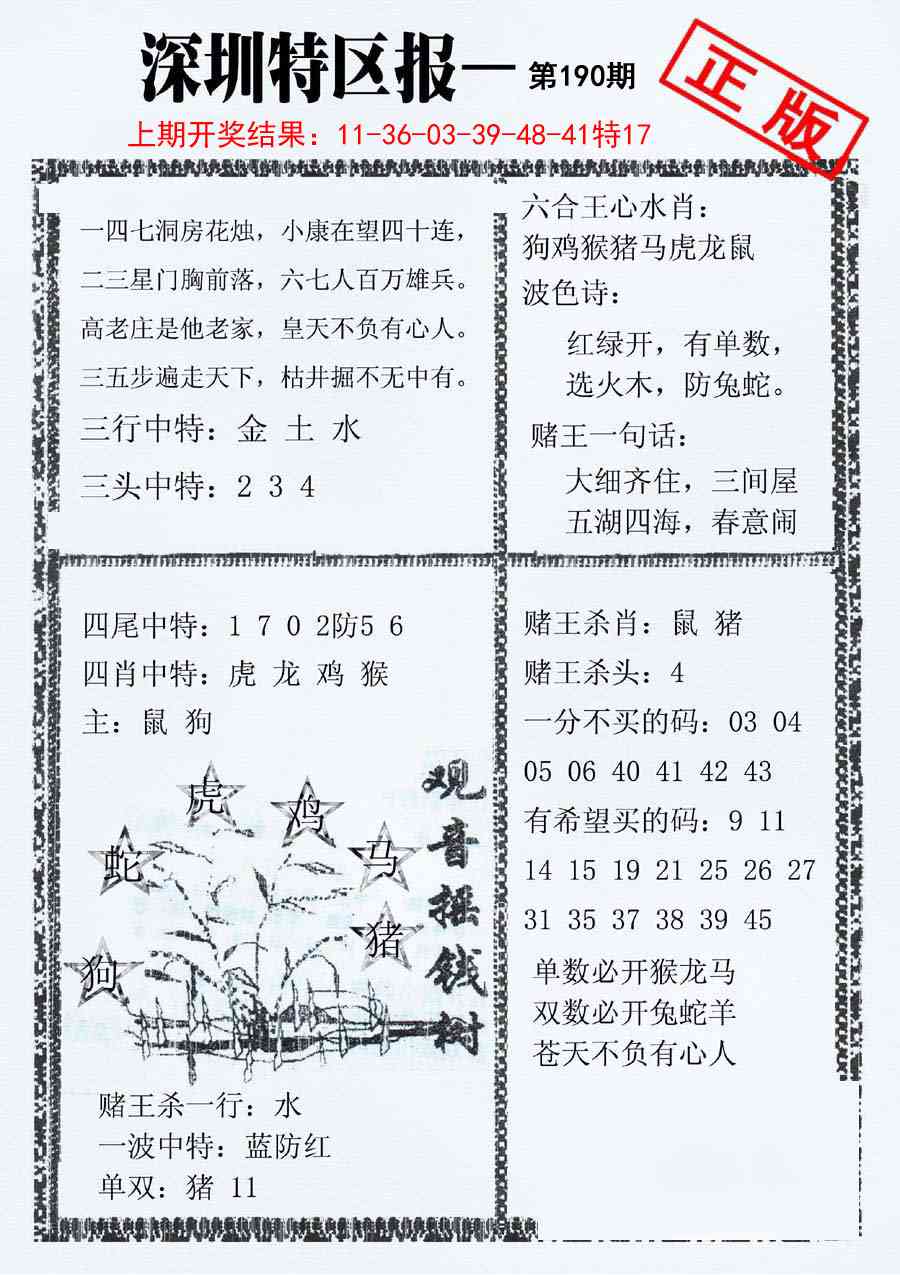 深圳特区报一 第190期
正版
上期开奖结果：11-36-03-39-48-41特17
一四七洞房花烛，小康在望四十连，
二三星门胸前落，六七人百万雄兵。
高老庄是他老家，皇天不负有心人。
三五步遍走天下，枯井掘不无中有。
三行中特：金 土 水
三头中特：2 3 4
六合王心水肖：
狗鸡猴猪马虎龙鼠
波色诗：
红绿开，有单数，
选火木，防兔蛇。
赌王一句话：
大细齐住，三间屋
五湖四海，春意闹
四尾中特：1 7 0 2防5 6
四肖中特：虎 龙 鸡 猴
主：鼠 狗
虎
鸡
蛇
马
猪
狗
观音摇钱树
赌王杀一行：水
一波中特：蓝防红
单双：猪 11
赌王杀肖：鼠 猪
赌王杀头：4
一分不买的码：03 04
05 06 40 41 42 43
有希望买的码：9 11
14 15 19 21 25 26 27
31 35 37 38 39 45
单数必开猴龙马
双数必开兔蛇羊
苍天不负有心人